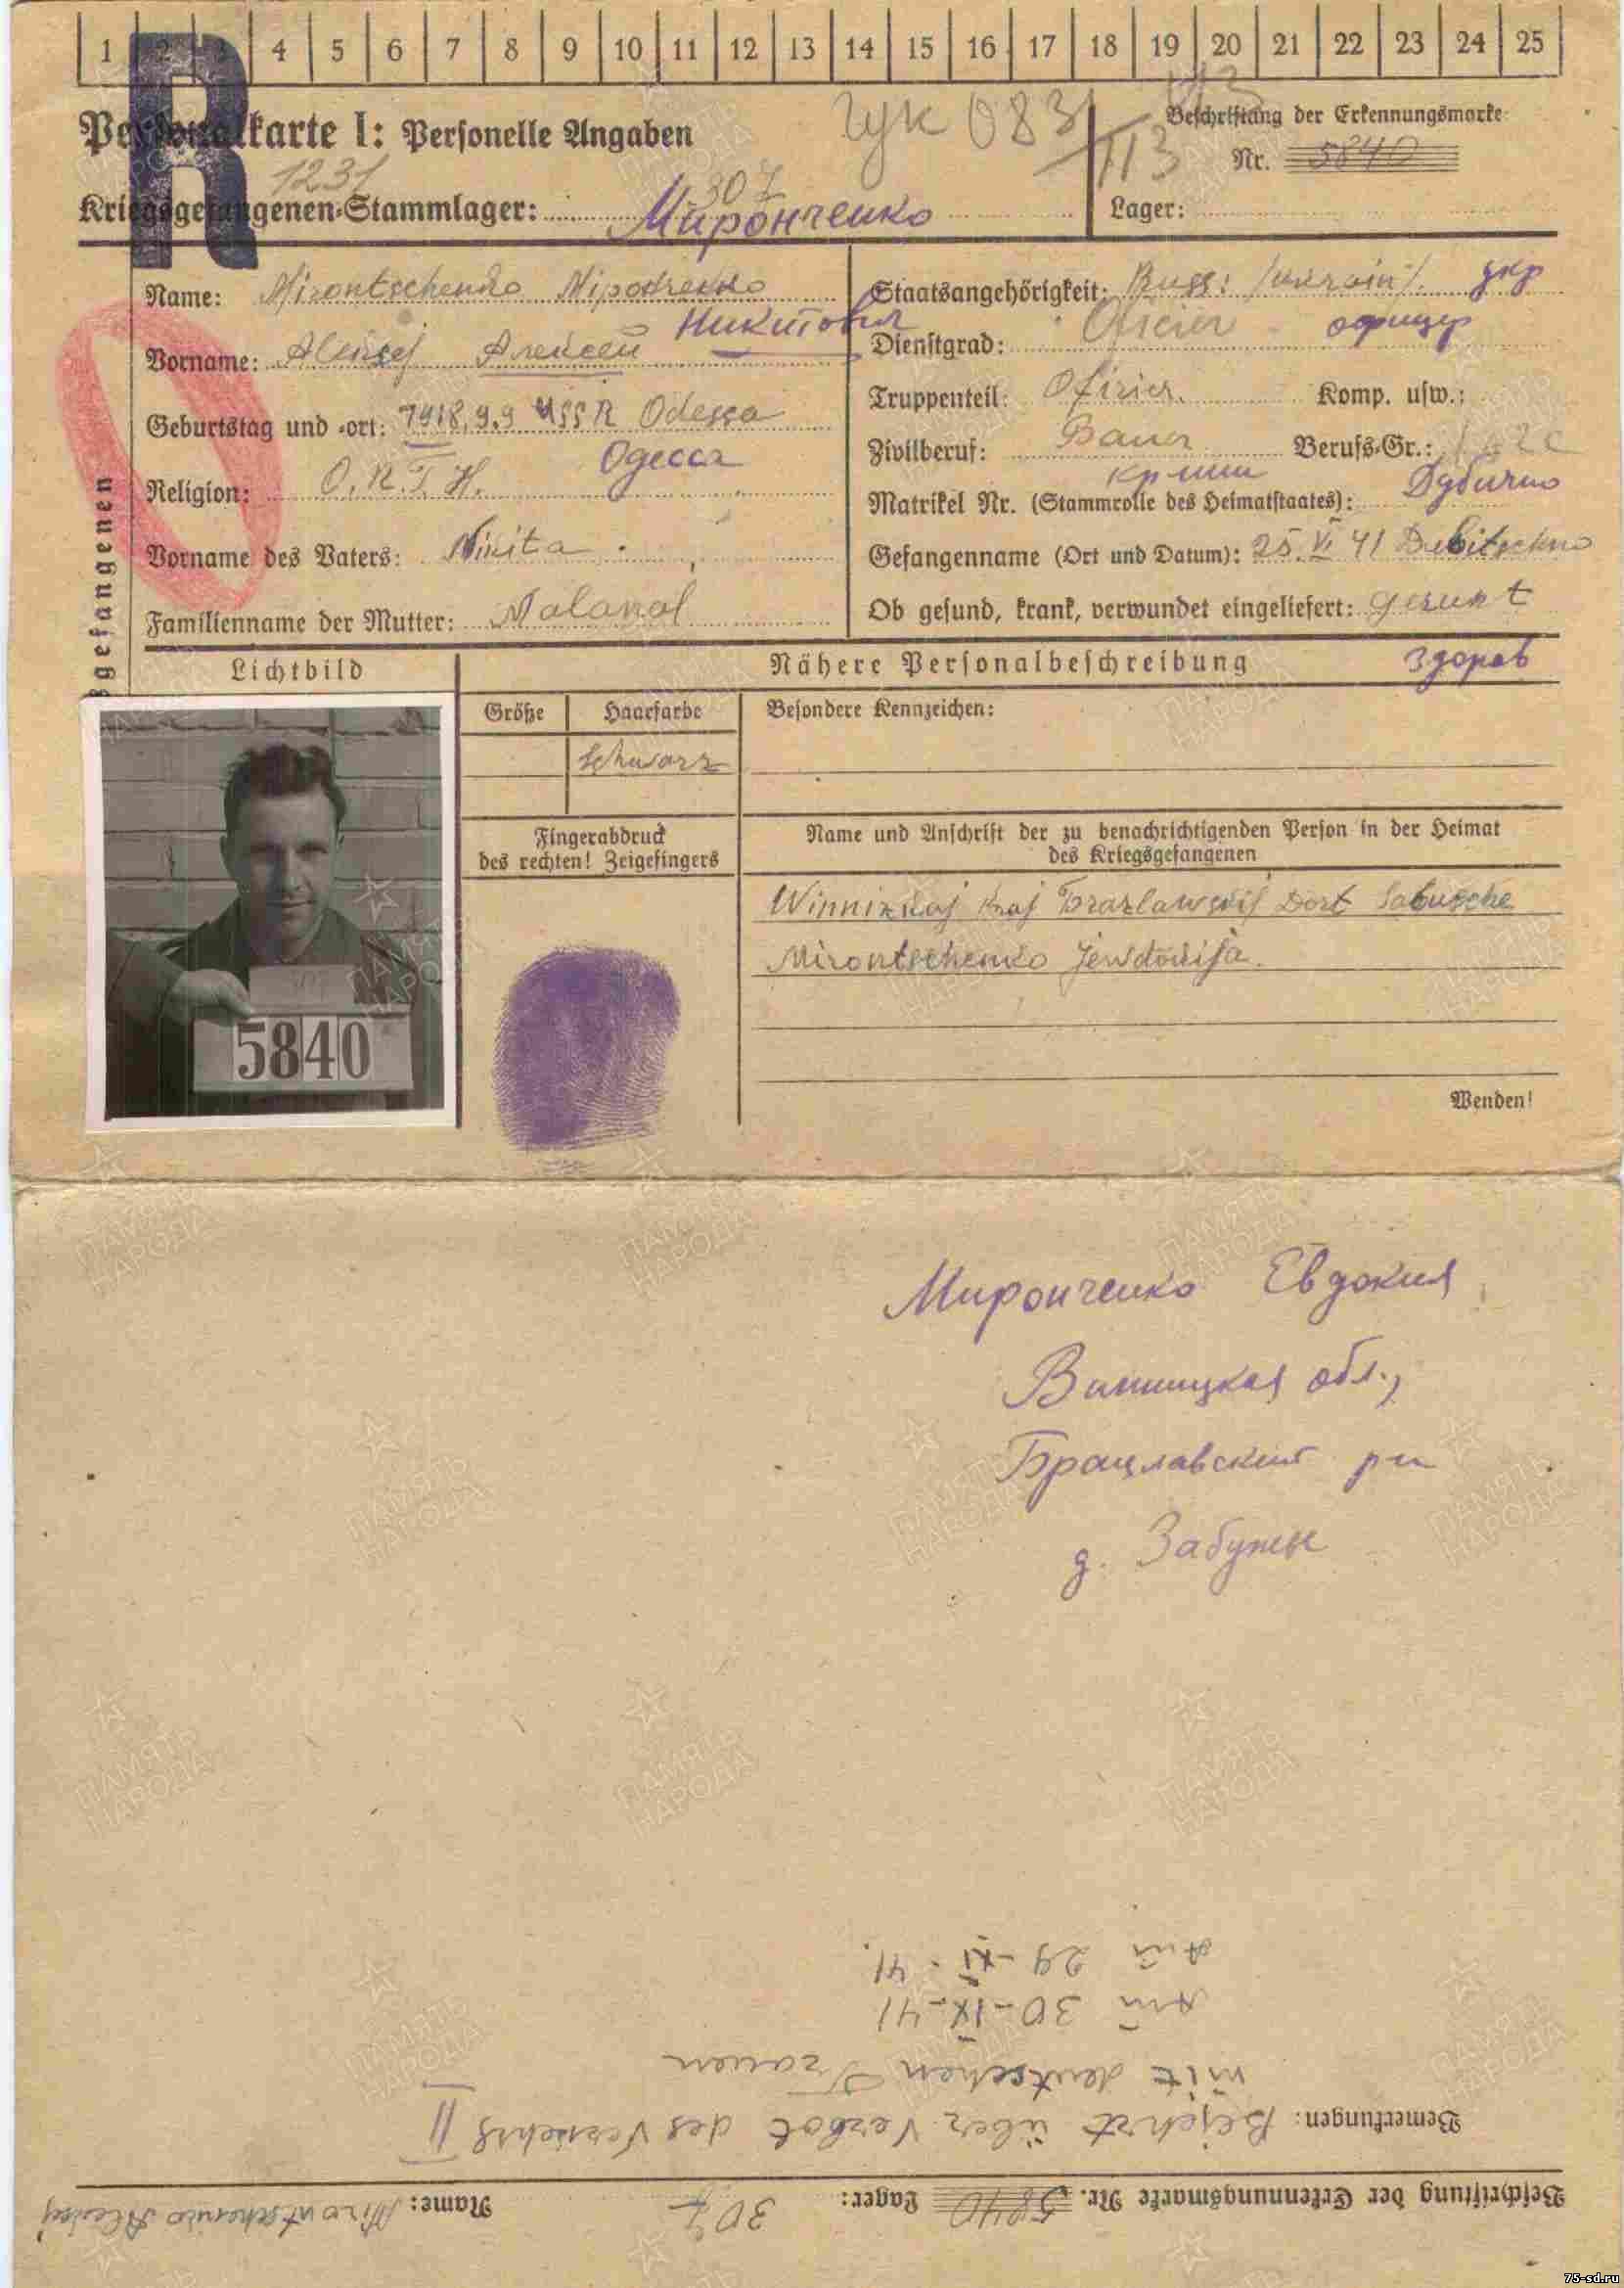 1 2 3 4 5 6 7 8 9 10 11 12 13 14 15 16 17 18 19 20 21 22 23 24 25
R
Personalkarte I: Personelle Angaben
Гук 083
Beschriftung der Erkennungsmarke
Nr. 5840
1231
307
Kriegsgefangenen-Stammlager: Миронченко
Lager:
Name: Mirontschenko
Staatsangehörigkeit: Russ. укр
Никтовия
Vorname: Aleksej Алексей
Dienstgrad: Oficier офицер
Truppenteil: Ofizier. Komp. usw.:
Geburtstag und -ort: 1918.9.9 USSR Odessa
Одесса
Zivilberuf: Bauer Berufs-Gr.:
Religion: O.R.T.H.
Matrikel Nr. (Stammrolle des Heimatstaates): Дубично
Vorname des Vaters: Nikita
Gefangennahme (Ort und Datum): 25.VI 41 Dubitschno
Familienname der Mutter:
Ob gesund, krank, verwundet eingeliefert: gesunt
здоров
gefangenen
Lichtbild
Nähere Personalbeschreibung
Größe Haarfarbe
Besondere Kennzeichen:
schwarz
Fingerabdruck
des rechten! Zeigefingers
Name und Anschrift der zu benachrichtigenden Person in der Heimat
des Kriegsgefangenen
Winnizkaj Kraj Brazlawskij Dort Sabusche
Mirontschenko Jewdokija.
5840
Wenden!
Миронченко Евдокия
Винницкая обл.,
Брацлавский р-н
д. Забужье
Beschriftung der Erkennungsmarke Nr. 5840 Lager: 307 Name: Mirontschenko Aleksej
Bemerkungen: Belehrt über Verbot des Verkehrs II
mit deutschen Frauen
Am 30-IX-41
Am 29-XI-41.
ПАМЯТЬ НАРОДА
75-sd.ru